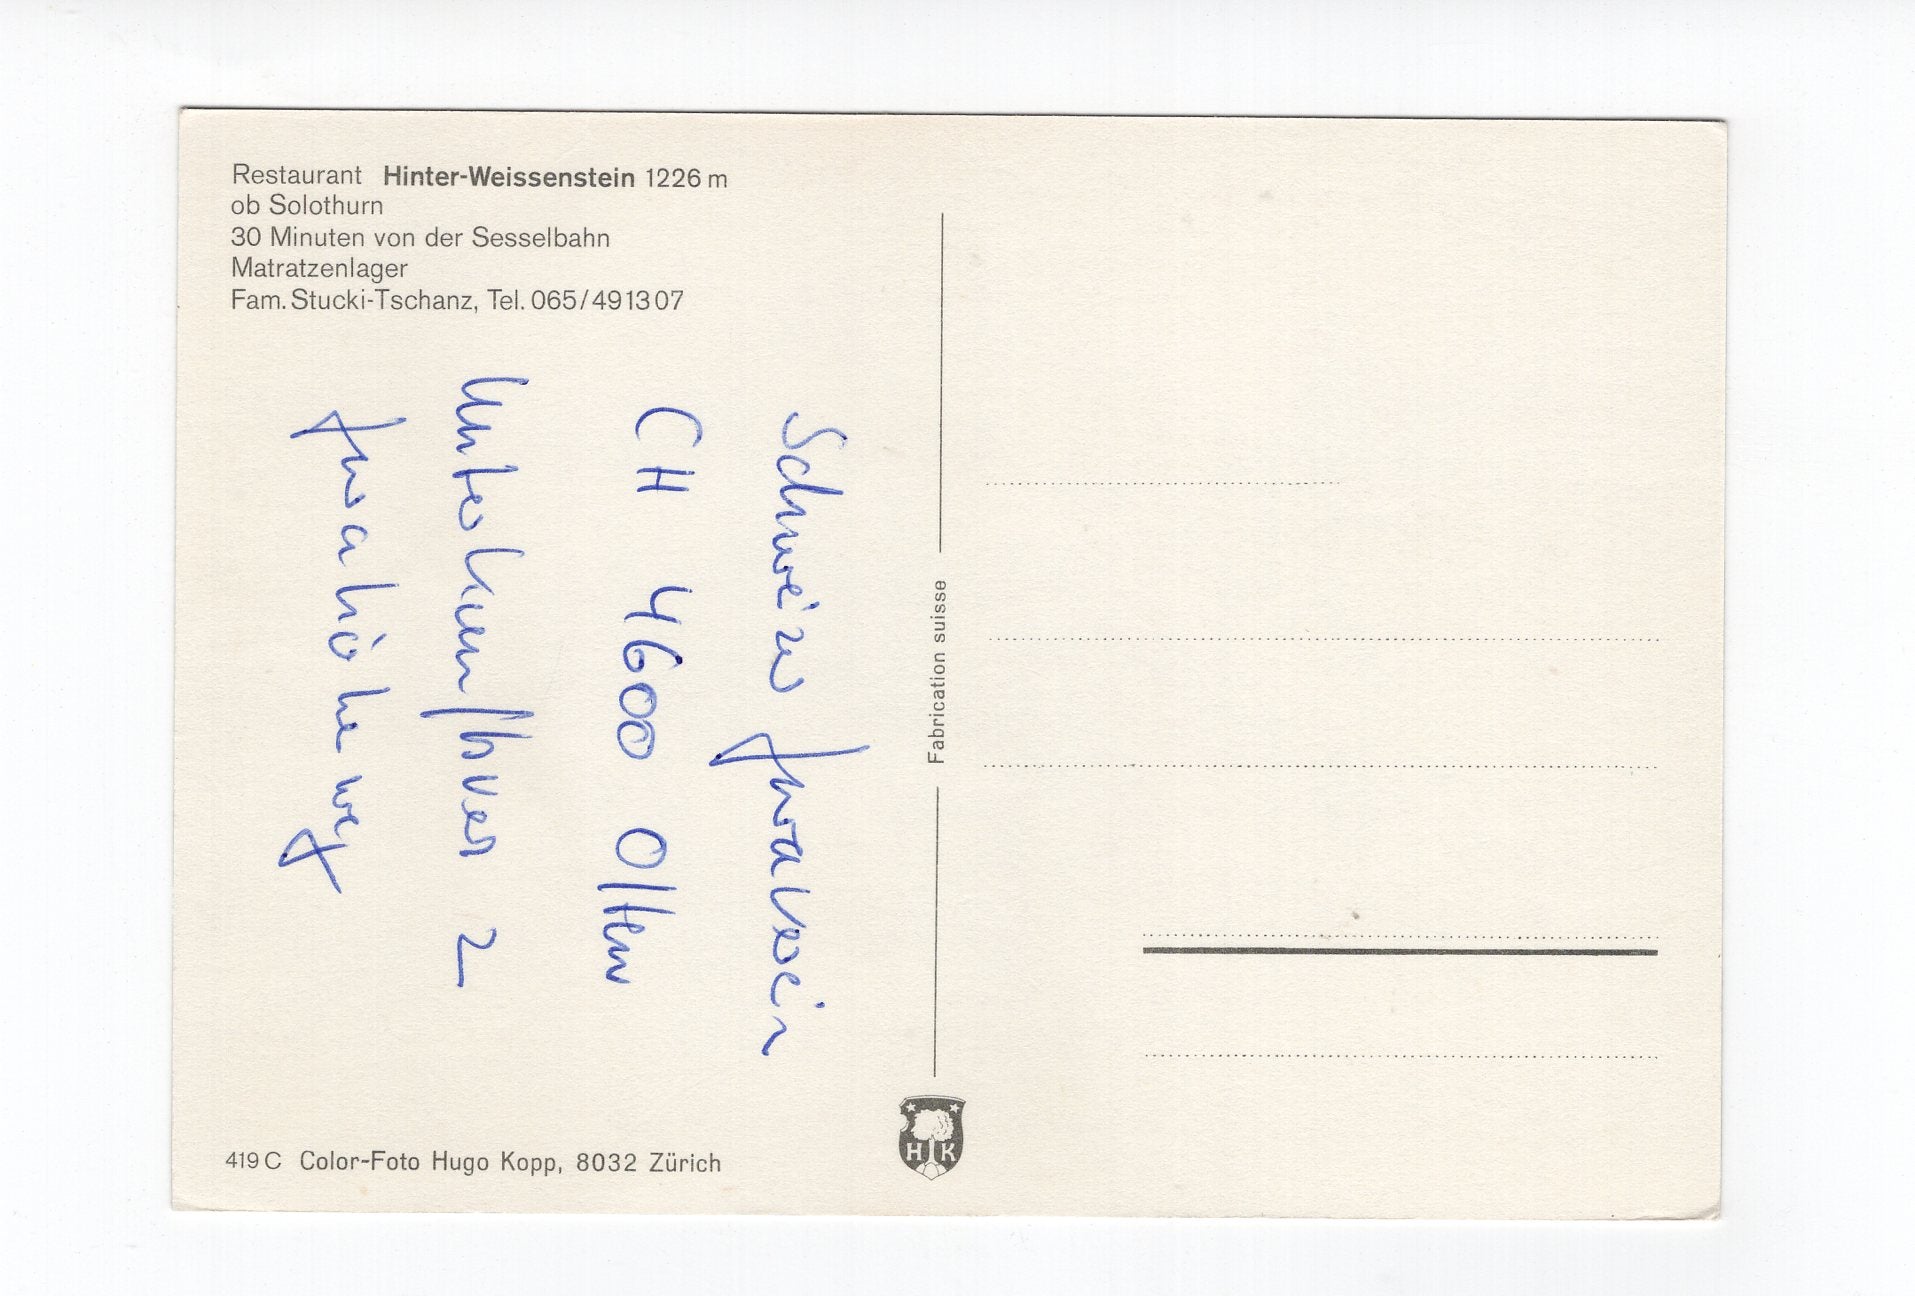 Restaurant Hinter-Weissenstein 1226 m
ob Solothurn
30 Minuten von der Sesselbahn
Matratzenlager
Fam. Stucki-Tschanz, Tel. 065/491307
Schweizer Juraverein
CH 4600 Olten
Jurahöhenweg
Fabrication suisse
H K
419 C Color-Foto Hugo Kopp, 8032 Zürich